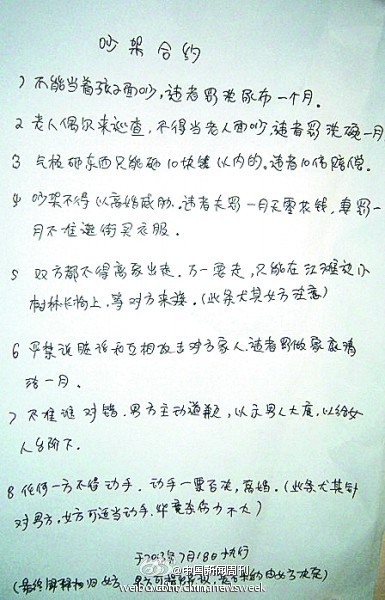 吵架合约
1 不能当着孩子面吵,违者罚洗尿布一个月。
2 老人偶尔来巡查,不得当老人面吵,违者罚洗碗一月
3 气极砸东西只能砸10块钱以内的。违者10倍赔偿。
4 吵架不得以离婚威胁。违者夫罚一月无零花钱,妻罚一
月不准逛街买衣服。
5 双方都不得离家出走。万一要走,只能在江堤边小
树林长椅上,等对方来接。(此条尤其女方注意)
6 严禁说脏话和互相攻击对方家人。违者罚做家庭清
洁一月。
7 不准谁对错。男方主动道歉,以示男人大度,以给女
人台阶下。
8 任何一方不得动手。动手一票否决,离婚。(此条尤其针
对男方,女方可适当动手,毕竟杀伤力不大)
于2013年7月18日执行
(最终解释权归女方,男方可提
@中国新闻周刊
weibo.com/chinanewsweek